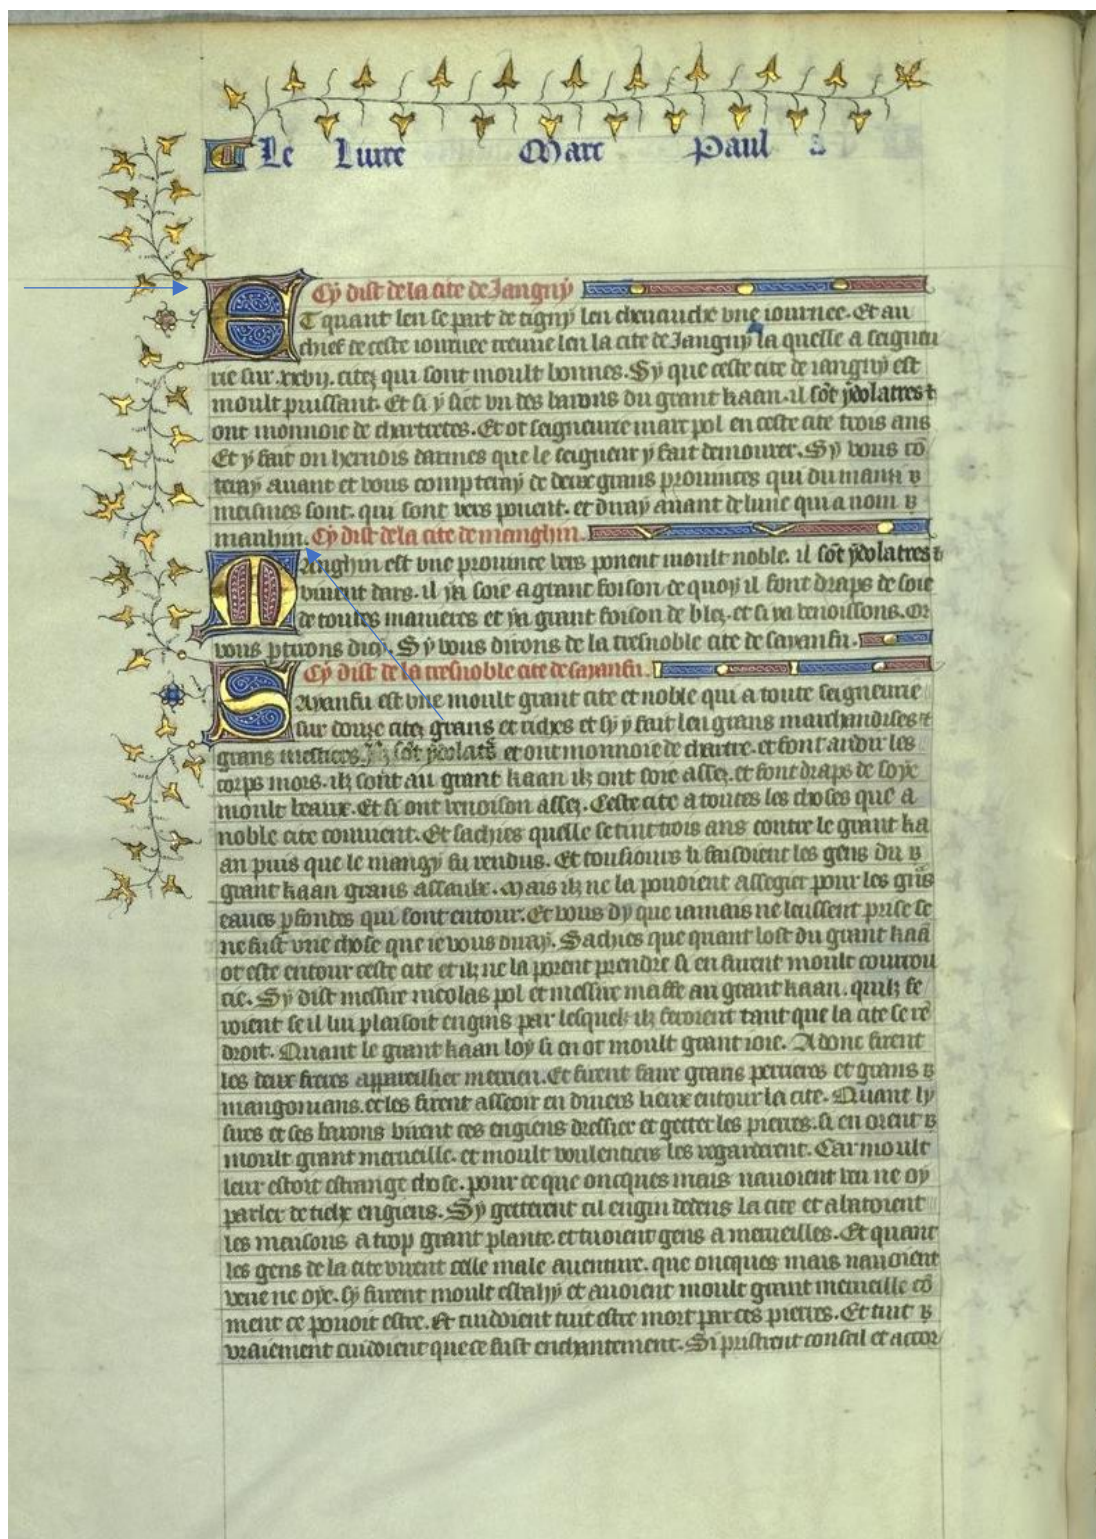 Le Liure Marc Paul
Cy dist de la cite de Jangny
Et quant len se part de tigny len cheuauche vne iournee. Et au
chief de ceste iournee treuue len la cite de Jangny la quelle a seigneu
rie sur .xxvij. citez qui sont moult bonnes. Sy que ceste cite de iangny est
moult puissant. Et si y siet vn des barons du grant kaan. il sōt ydolatres ⁊
ont monnoie de chartretes. Et ot seigneurie marc pol en ceste cite trois ans
Et y fait on hernois darmes que le seigneur y fait demourer. Sy vous cō
teray auant et vous compteray de deux grans prouinces qui du mangi
meismes sont. qui sont vers ponent. et diray auant de lune qui a nom
manhin. Cy dist de la cite de manghin.
Manghin est vne prouince vers ponent moult noble. il sōt ydolatres ⁊
viuent dars. il ya soie a grant foison de quoy il font draps de soie
de toutes manieres et ya grant foison de blez. et si ya venoissons. Or
vous ptirons dicy. Sy vous dirons de la tresnoble cite de sayanfu.
Cy dist de la tresnoble cite de sayanfu.
Sayanfu est vne moult grant cite et noble qui a toute seigneurie
sur douze citez grans et riches et sy y fait len grans marchandises ⁊
grans mestiers. Ilz sōt ydolatrs et ont monnoie de chartre. et font ardoir les
corps mors. ilz sont au grant kaan ilz ont soie assez. et font draps de soye
moult beaux. Et si ont venoison assez. Ceste cite a toutes les choses que a
noble cite conuient. Et sachies quelle se tint trois ans contre le grant ka
an puis que le mangy fu rendus. Et tousiours li faisoient les gens du
grant kaan grans assaulx. Mais ilz ne la pouoient assegier pour les grās
eaues pfondes qui sont entour. Et vous dy que iamais ne leussent prise se
ne fust vne chose que ie vous diray. Sachies que quant lost du grant kaā
ot este entour ceste cite et ilz ne la porent prendre si en furent moult courrou
cie. Sy dist messire nicolas pol et messire maffe au grant kaan. quilz fe
roient se il lui plaisoit engins par lesquelz ilz feroient tant que la cite se rē
droit. Quant le grant kaan loy si en ot moult grant ioie. Adonc firent
les deux freres appareillier merrien. Et firent faire grans perrieres et grans
mangonians. et les firent asseoir en diuers lieux entour la cite. Quant ly
sires et ses barons virent ces engiens dressier et getter les pierres. si en orent
moult grant merueille. et moult voulentiers les regarderent. Car moult
leur estoit estrange chose. pour ce que oncques mais nauoient veu ne oy
parler de tielx engiens. Sy getterent cil engin dedens la cite et abatoient
les maisons a trop grant plante. et tuoient gens a merueilles. Et quant
les gens de la cite virent celle male auenture. que oncques mais nauoient
veue ne oye. sy furent moult esbahy et auoient moult grant merueille cō
ment ce pouoit estre. Et cuidoient tuit estre mort par ces pierres. Et tuit
vraiement cuidoient que ce fust enchantement. Si pristrent conseil et accor